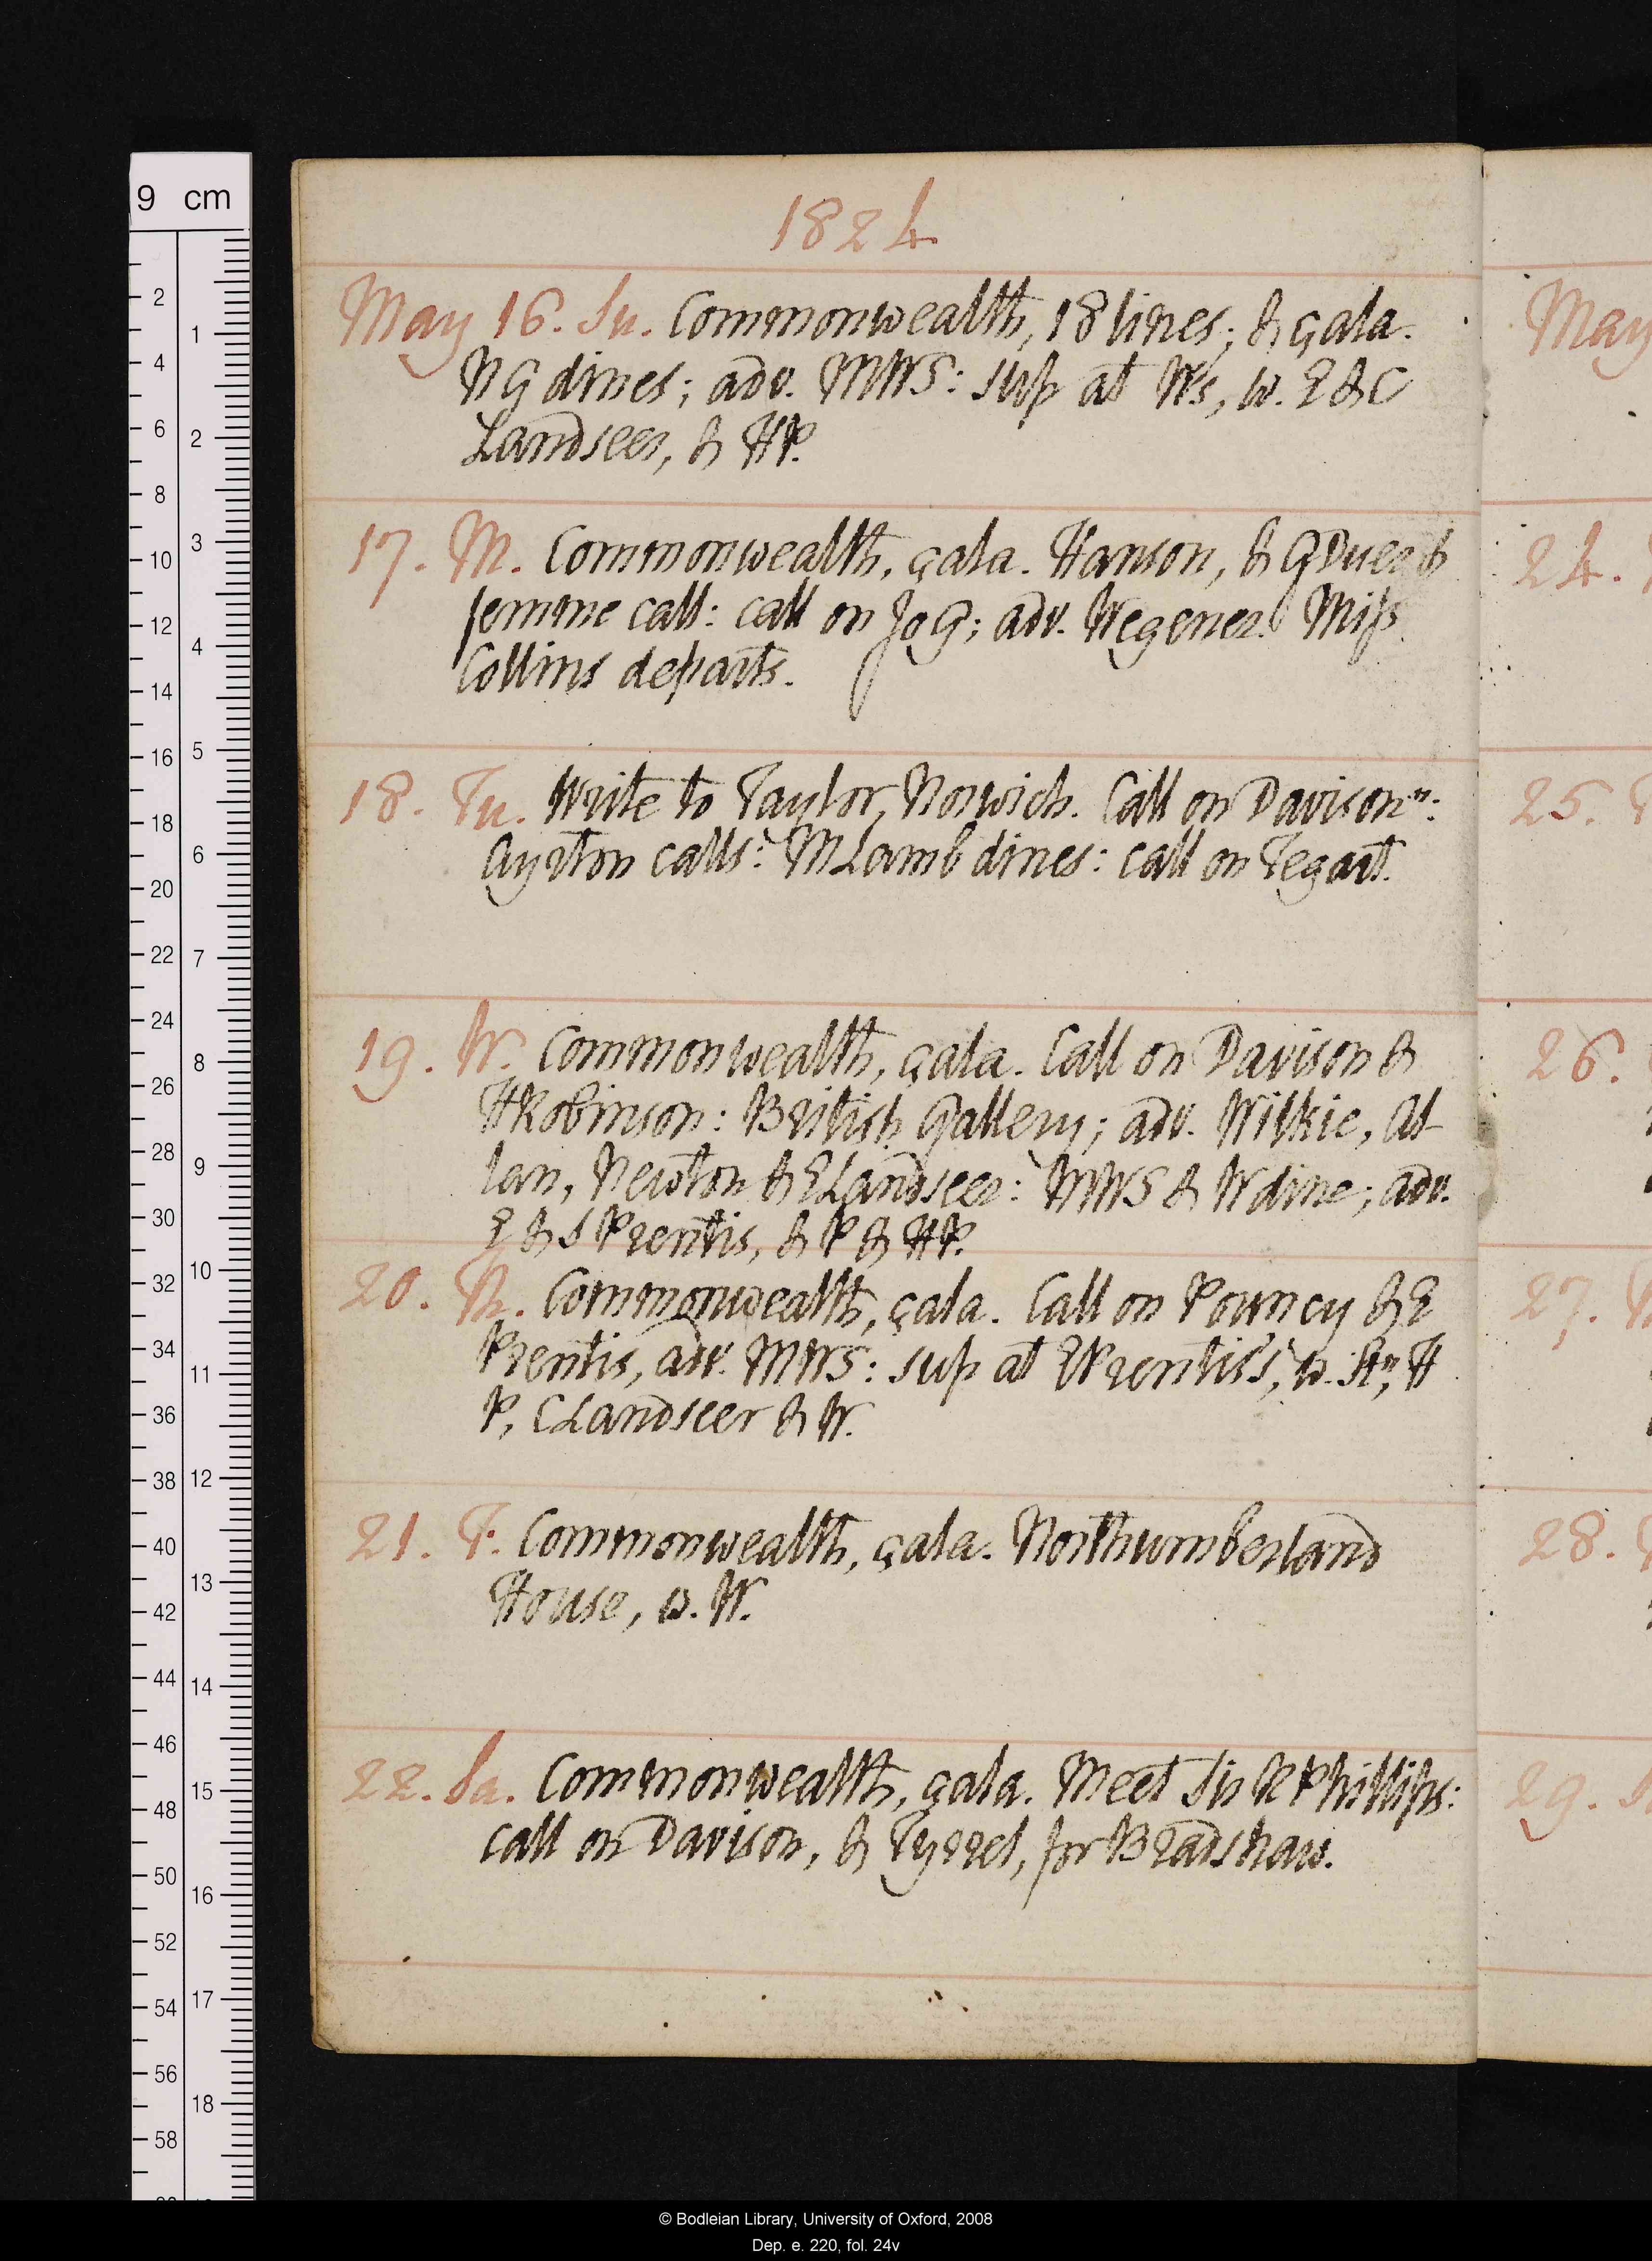 1824
May 16. Su. Commonwealth, 18 lines; & çala.
NG dines; adv. MWS: sup at W's, w. E & C
Landseer, & HP.
17. M. Commonwealth, çala. Hanson, & G Duer &
femme call: call on Jo G; adv. Wegener. Miss
Collins departs.
18. Tu. Write to Taylor, Norwich. Call on Davison n:
Ayrton calls: M Lamb dines: call on Tegart.
19. W. Commonwealth, çala. Call on Davison &
H Robinson: British Gallery; adv. Wilkie, At
lan, Newton & E Landseer: MWS & W dine; adv.
E & S Prentis, & P & HP.
20. Th. Commonwealth, çala. Call on Pouncy & E
Prentis, adv. MWS: sup at E Prentis's, w. Sn, H
P, C Landseer & W.
21. F. Commonwealth, çala. Northumberland
House, w. W.
22. Sa. Commonwealth, çala. Meet Sir R Phillips:
call on Davison, & Tyrrel, for Bradshaw.
May
24.
25.
26.
27.
28.
29.
9 cm
© Bodleian Library, University of Oxford, 2008
Dep. e. 220, fol. 24v